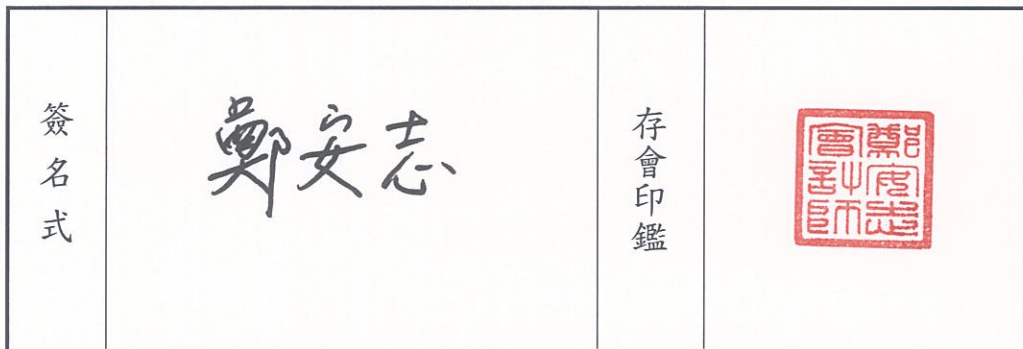 簽名式
鄭安志
存會印鑑
鄭安志
會計師